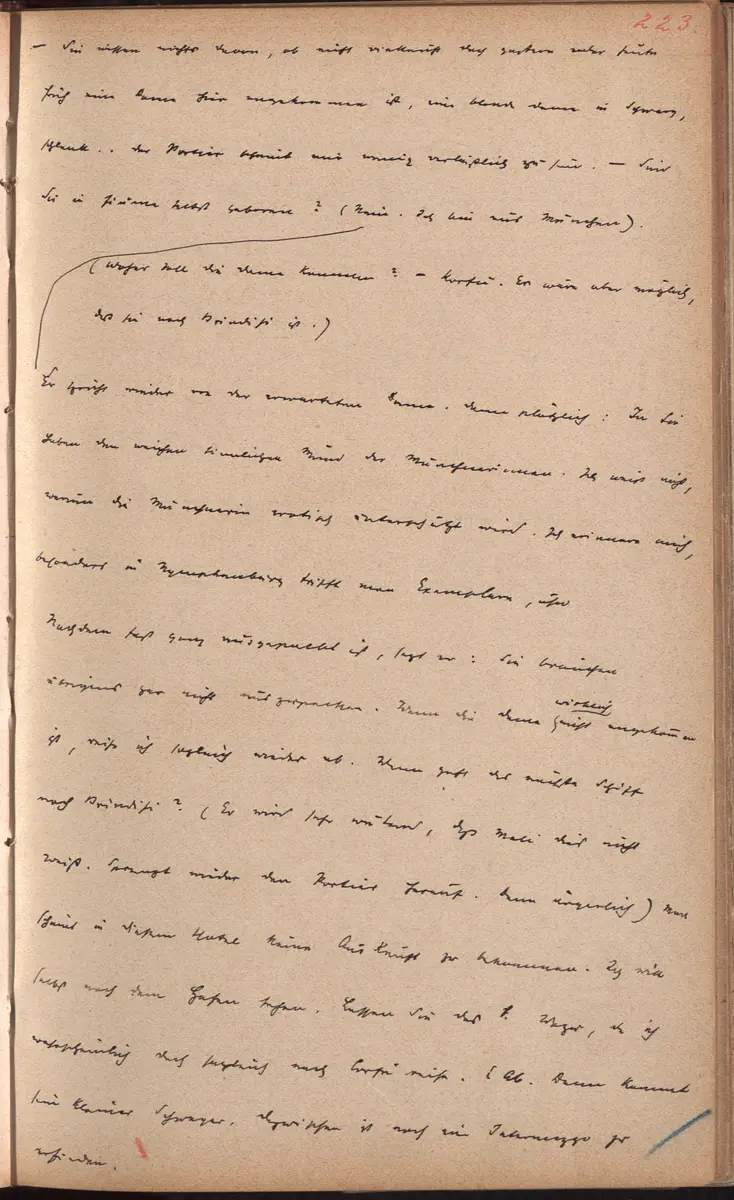 223.
– Sie wissen nichts davon, ob nicht vielleicht doch gestern oder heute
früh eine Dame hier angekommen ist, eine blonde Dame in Schwarz,
schlank.. der Portier scheint mir wenig verläßlich zu sein. – Sind
Sie in Fiume selbst geboren? (Nein. Ich bin aus München).
(Woher soll die Dame kommen? – Korfu. Es wäre aber möglich,
daß sie nach Brindisi ist.)
Er spricht wieder von der erwarteten Dame. Dann plötzlich: Ja Sie
haben den weichen sinnlichen Mund der Münchnerinnen. Ich weiß nicht,
warum die Münchnerin erotisch unterschätzt wird. Ich erinnere mich,
besonders in Nymphenburg trifft man Exemplare,
Nachdem fast ganz ausgepackt ist, sagt er: Sie brauchen
übrigens gar nicht auszupacken. Wenn die Dame wirklich nicht angekommen
ist, reise ich sogleich wieder ab. Wann geht das nächste Schiff
nach Brindisi? (Er wird sehr wütend, daß Mali dies nicht
weiß. Sprengt wieder den Portier herauf. Dann ärgerlich) Man
scheint in diesem Hotel keine Auskunft zu bekommen. Ich will
selbst nach dem Hafen sehen. Lassen Sie das, da ich
wahrscheinlich doch sogleich nach Corfu reise. (Ab. Dann kommt
sein Schwager. Dazwischen ist noch ein Intermezzo zu
erfinden.